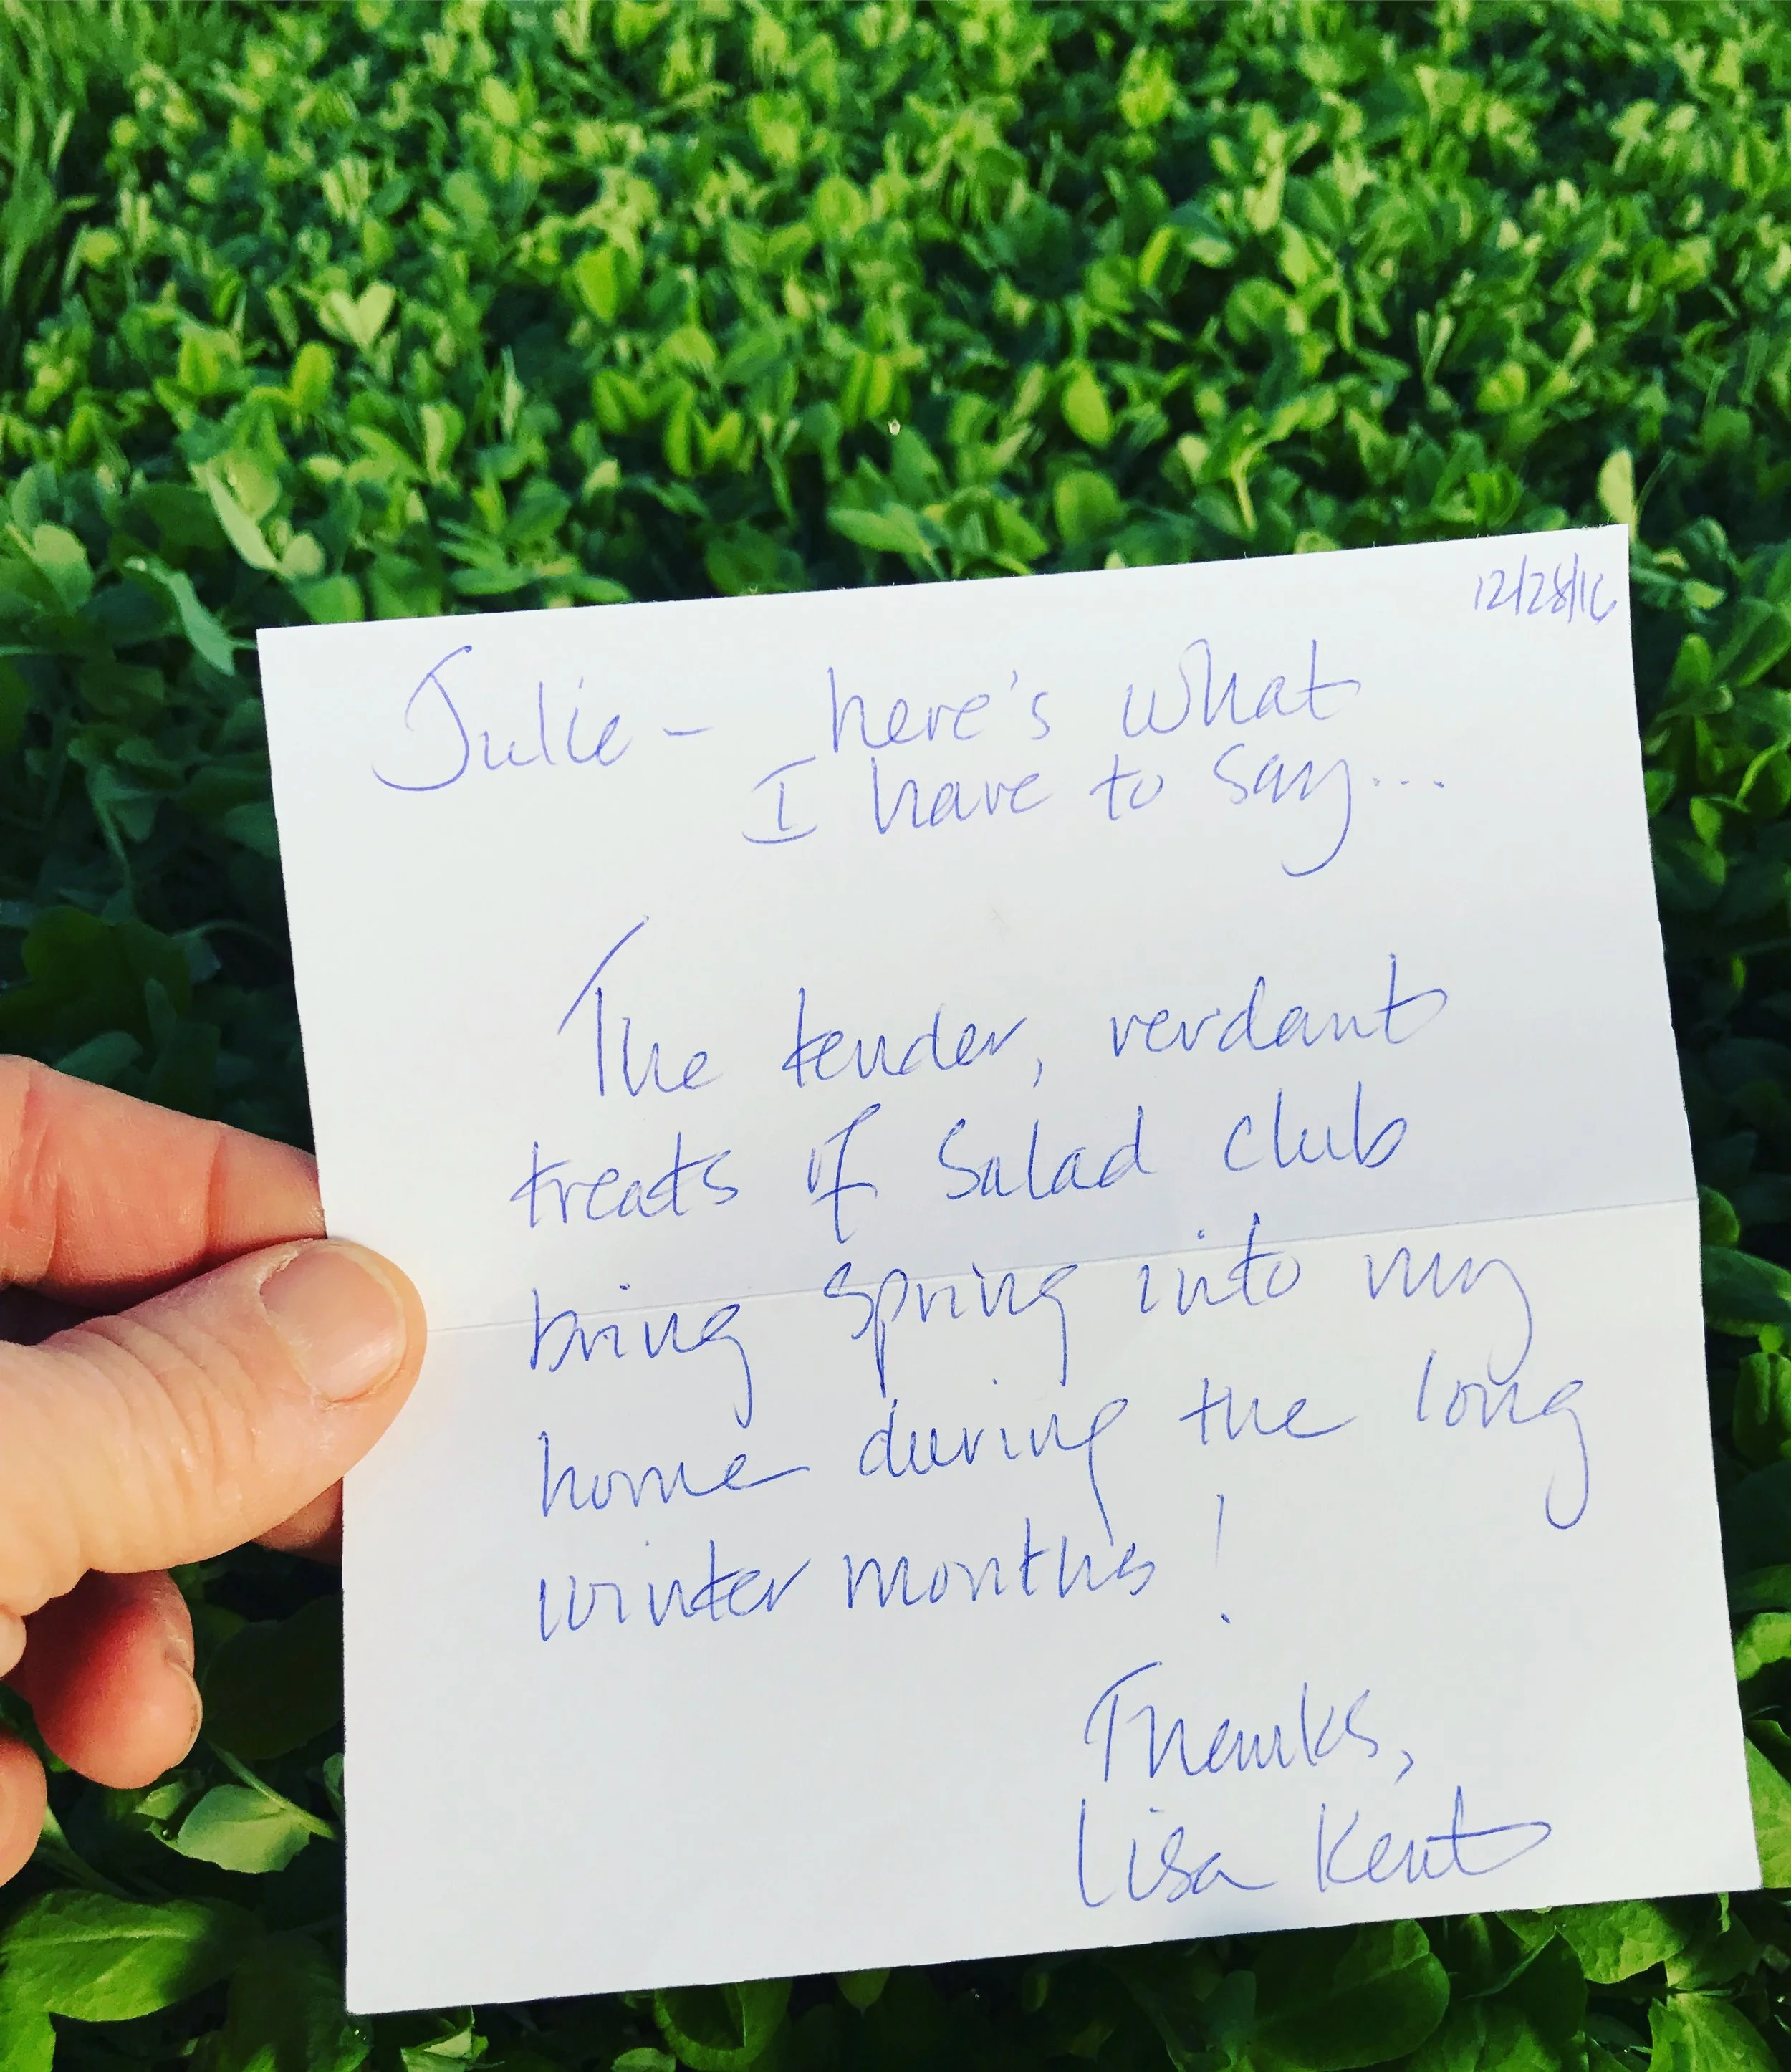 12/28/16
Julie - here's what
I have to say...
The tender, verdant
treats of Salad club
bring Spring into my
home during the long
winter months!
Thanks,
Lisa Kent